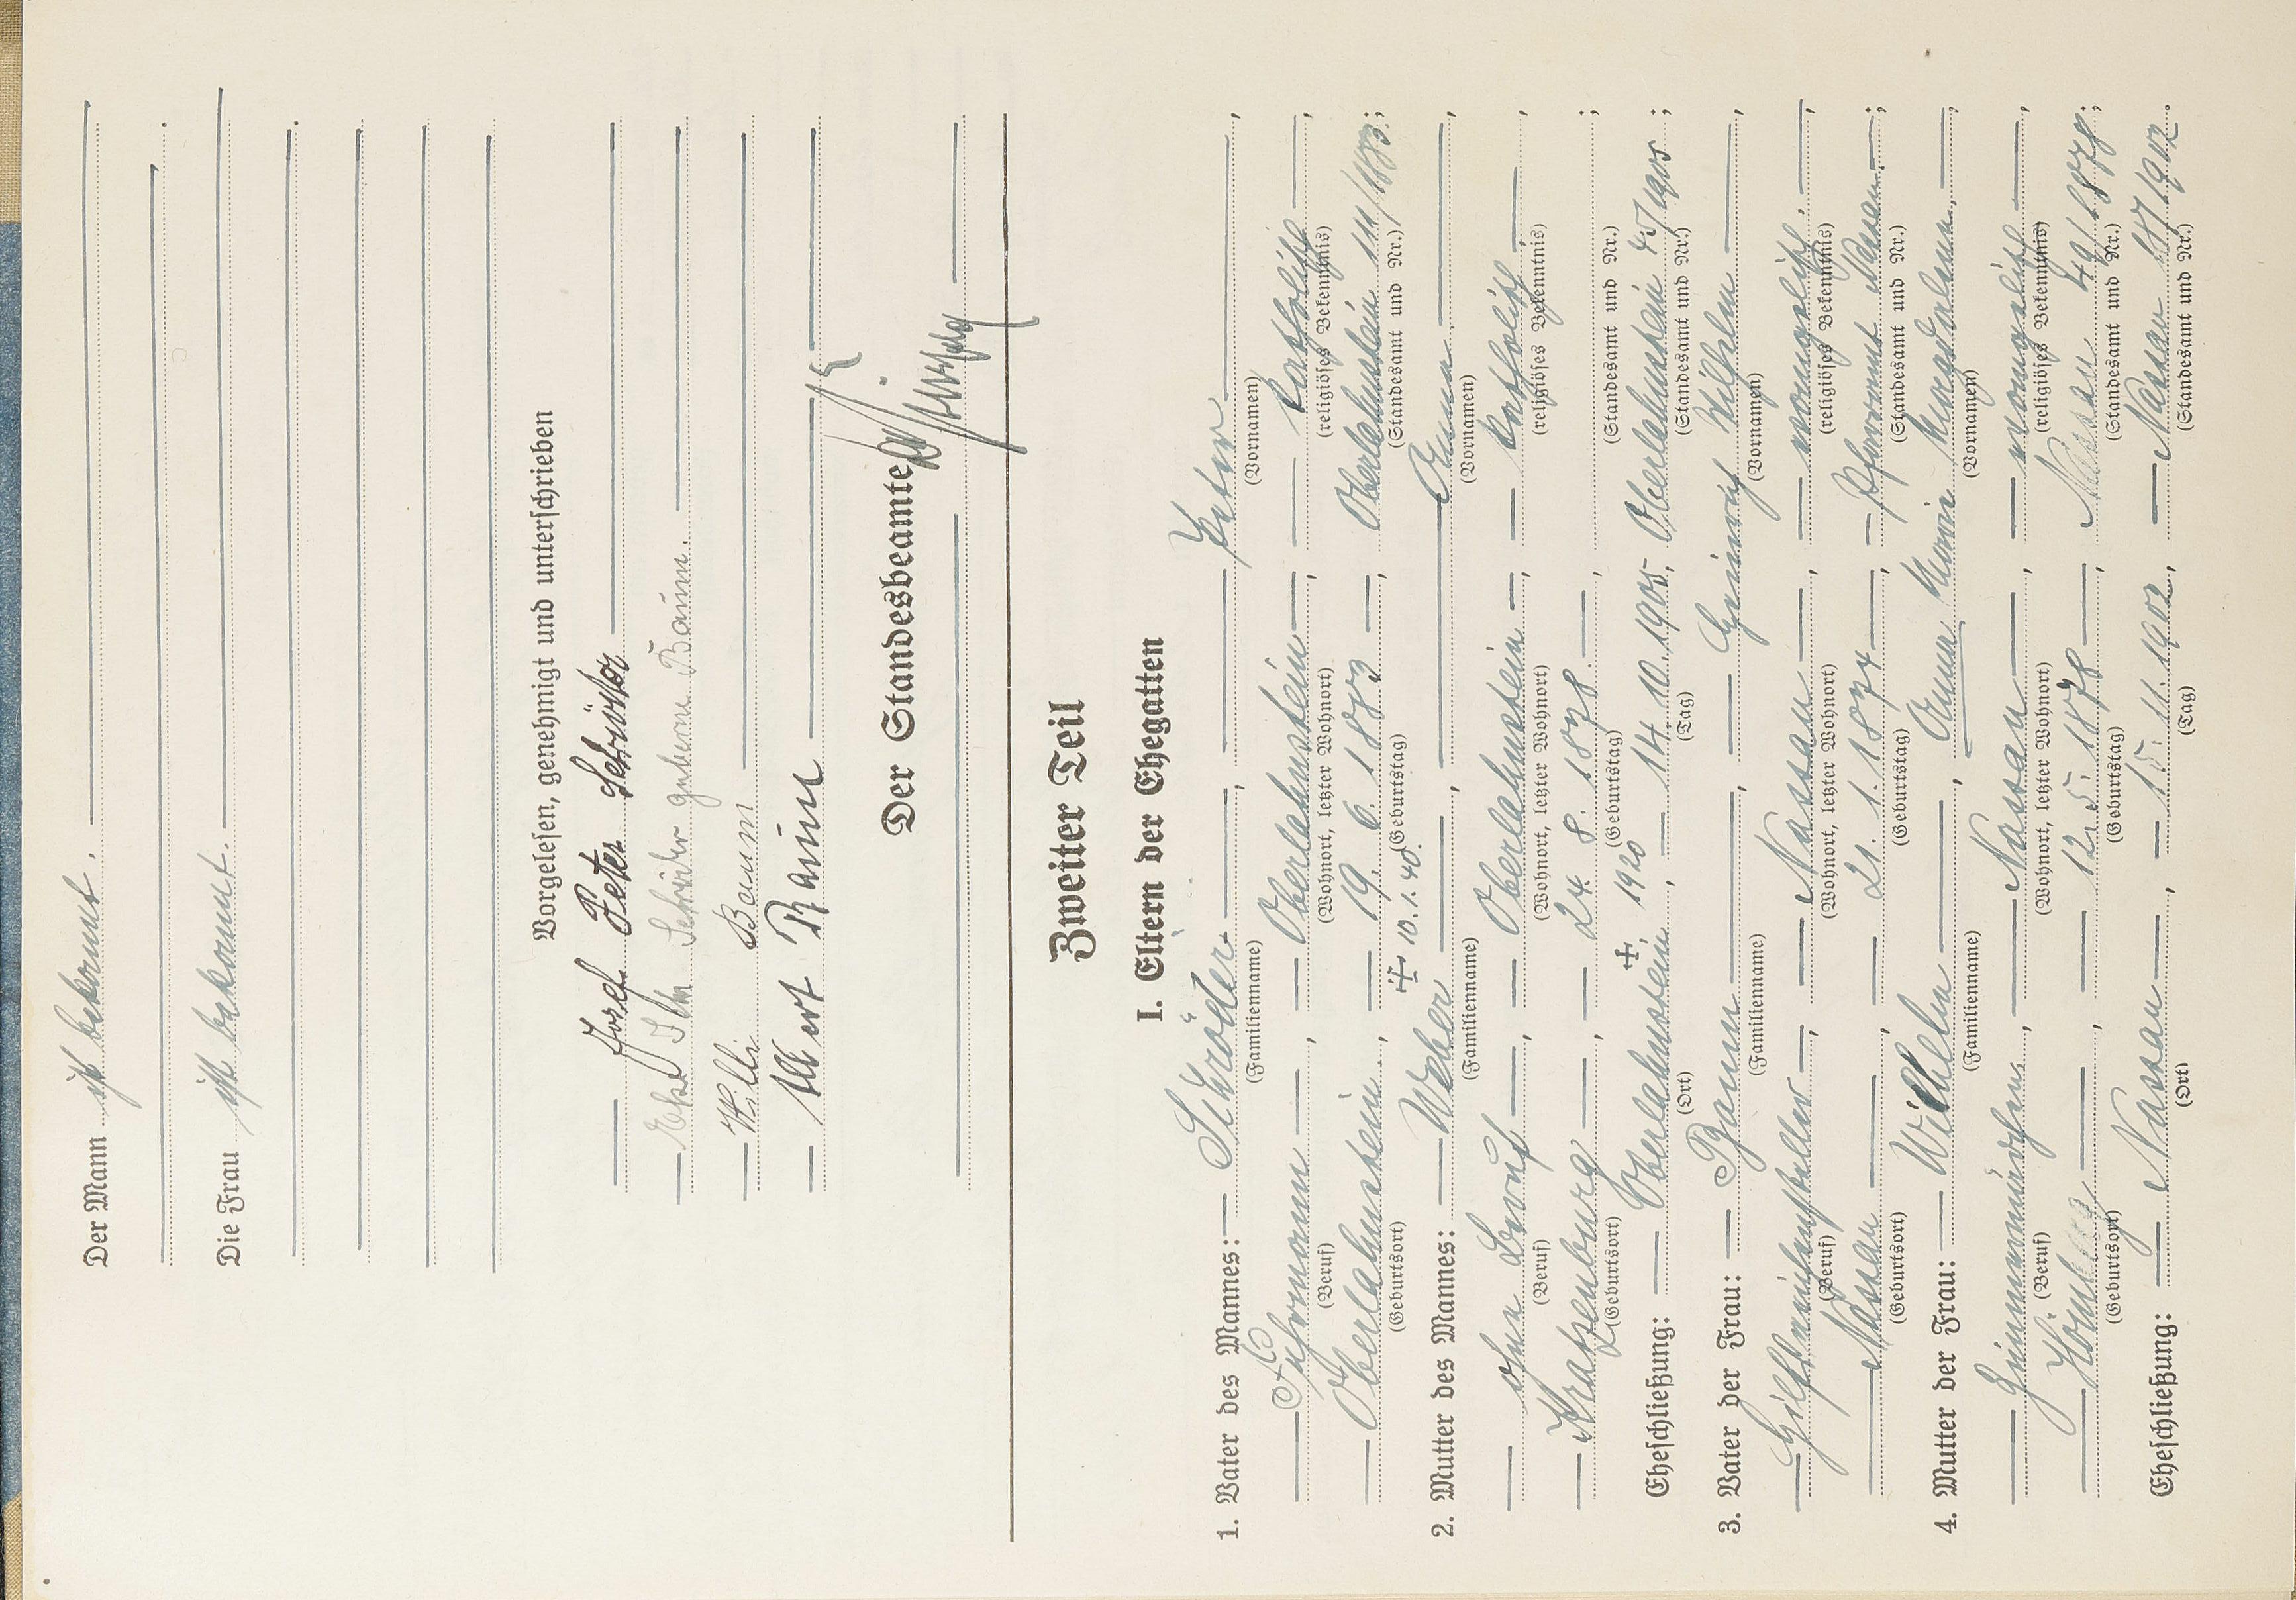 Der Mann ist bekannt.
Die Frau ist bekannt.
Vorgelesen, genehmigt und unterschrieben
Josef Peter Schröder
Schröder geborene Baum.
Willi Baum
Albert Baum
Der Standesbeamte
Zweiter Teil
I. Eltern der Ehegatten
1. Vater des Mannes: Schröder, Peter,
(Familienname) (Vornamen)
Fuhrmann, Oberlahnstein, katholisch,
(Beruf) (Wohnort, letzter Wohnort) (religiöses Bekenntnis)
Oberlahnstein, 19. 6. 1883, Oberlahnstein 111/1883;
(Geburtsort) (Geburtstag) (Standesamt und Nr.)
+ 10.1.40.
2. Mutter des Mannes: Weber, Anna,
(Familienname) (Vornamen)
ohne Beruf, Oberlahnstein, katholisch,
(Beruf) (Wohnort, letzter Wohnort) (religiöses Bekenntnis)
Kratzenburg, 24. 8. 1878, ;
(Geburtsort) (Geburtstag) (Standesamt und Nr.)
+ 1920
Eheschließung: Oberlahnstein, 14. 10. 1905, Oberlahnstein 45/1905;
(Ort) (Tag) (Standesamt und Nr.)
3. Vater der Frau: Baum, Heinrich Wilhelm,
(Familienname) (Vornamen)
Nassau, evangelisch,
(Beruf) (Wohnort, letzter Wohnort) (religiöses Bekenntnis)
Nassau, 21. 1. 1874, Pfarramt Nassau;
(Geburtsort) (Geburtstag) (Standesamt und Nr.)
4. Mutter der Frau: Wilhelm, Anna Maria Magdalena,
(Familienname) (Vornamen)
Nassau, evangelisch,
(Beruf) (Wohnort, letzter Wohnort) (religiöses Bekenntnis)
Homberg, 12. 5. 1878, Nassau 49/1878;
(Geburtsort) (Geburtstag) (Standesamt und Nr.)
Eheschließung: Nassau, 15. 11. 1902, Nassau 187/1902.
(Ort) (Tag) (Standesamt und Nr.)